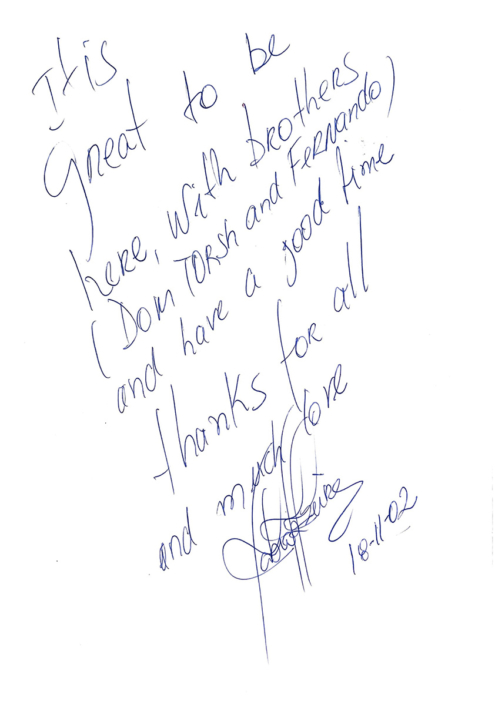 It is
great to be
here, with brothers
(Dom TORSH and FERNANDO)
and have a good time
thanks for all
and much love
18-11-02